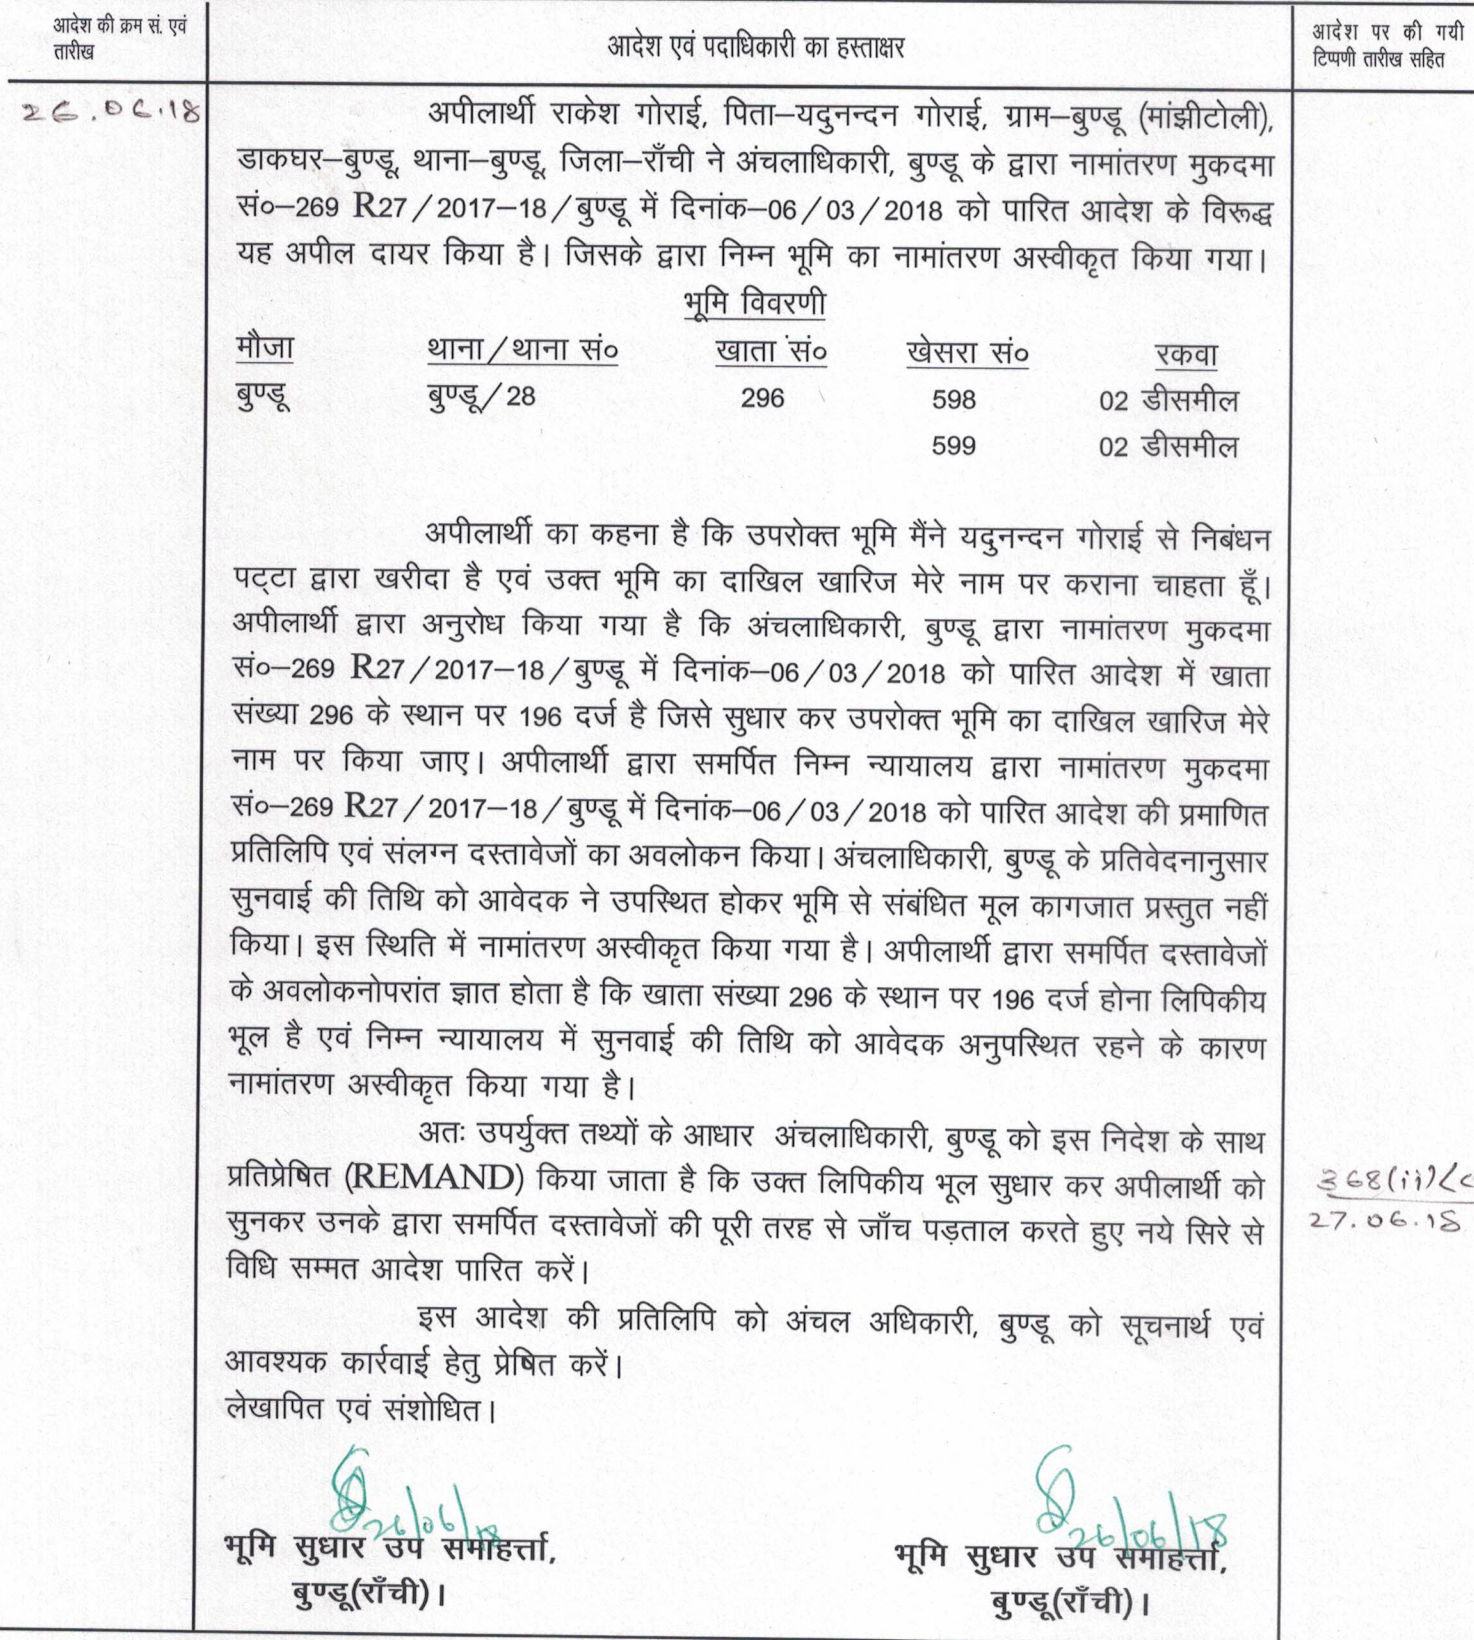 आदेश की क्रम सं. एवं
तारीख
आदेश एवं पदाधिकारी का हस्ताक्षर
आदेश पर की गयी
टिप्पणी तारीख सहित
26.06.18
अपीलार्थी राकेश गोराई, पिता–यदुनन्दन गोराई, ग्राम–बुण्डू (मांझीटोली),
डाकघर–बुण्डू, थाना–बुण्डू, जिला–राँची ने अंचलाधिकारी, बुण्डू के द्वारा नामांतरण मुकदमा
सं०–269 R27/2017–18/बुण्डू में दिनांक–06/03/2018 को पारित आदेश के विरूद्ध
यह अपील दायर किया है। जिसके द्वारा निम्न भूमि का नामांतरण अस्वीकृत किया गया।
भूमि विवरणी
मौजा थाना/थाना सं० खाता सं० खेसरा सं० रकवा
बुण्डू बुण्डू/28 296 598 02 डीसमील
599 02 डीसमील
अपीलार्थी का कहना है कि उपरोक्त भूमि मैंने यदुनन्दन गोराई से निबंधन
पट्टा द्वारा खरीदा है एवं उक्त भूमि का दाखिल खारिज मेरे नाम पर कराना चाहता हूँ।
अपीलार्थी द्वारा अनुरोध किया गया है कि अंचलाधिकारी, बुण्डू द्वारा नामांतरण मुकदमा
सं०–269 R27/2017–18/बुण्डू में दिनांक–06/03/2018 को पारित आदेश में खाता
संख्या 296 के स्थान पर 196 दर्ज है जिसे सुधार कर उपरोक्त भूमि का दाखिल खारिज मेरे
नाम पर किया जाए। अपीलार्थी द्वारा समर्पित निम्न न्यायालय द्वारा नामांतरण मुकदमा
सं०–269 R27/2017–18/बुण्डू में दिनांक–06/03/2018 को पारित आदेश की प्रमाणित
प्रतिलिपि एवं संलग्न दस्तावेजों का अवलोकन किया। अंचलाधिकारी, बुण्डू के प्रतिवेदनानुसार
सुनवाई की तिथि को आवेदक ने उपस्थित होकर भूमि से संबंधित मूल कागजात प्रस्तुत नहीं
किया। इस स्थिति में नामांतरण अस्वीकृत किया गया है। अपीलार्थी द्वारा समर्पित दस्तावेजों
के अवलोकनोपरांत ज्ञात होता है कि खाता संख्या 296 के स्थान पर 196 दर्ज होना लिपिकीय
भूल है एवं निम्न न्यायालय में सुनवाई की तिथि को आवेदक अनुपस्थित रहने के कारण
नामांतरण अस्वीकृत किया गया है।
अतः उपर्युक्त तथ्यों के आधार अंचलाधिकारी, बुण्डू को इस निदेश के साथ
प्रतिप्रेषित (REMAND) किया जाता है कि उक्त लिपिकीय भूल सुधार कर अपीलार्थी को
सुनकर उनके द्वारा समर्पित दस्तावेजों की पूरी तरह से जाँच पड़ताल करते हुए नये सिरे से
विधि सम्मत आदेश पारित करें।
368(ii)
27.06.18
इस आदेश की प्रतिलिपि को अंचल अधिकारी, बुण्डू को सूचनार्थ एवं
आवश्यक कार्रवाई हेतु प्रेषित करें।
लेखापित एवं संशोधित।
26/06/18
26/06/18
भूमि सुधार उप समाहर्त्ता,
भूमि सुधार उप समाहर्त्ता,
बुण्डू(राँची)।
बुण्डू(राँची)।